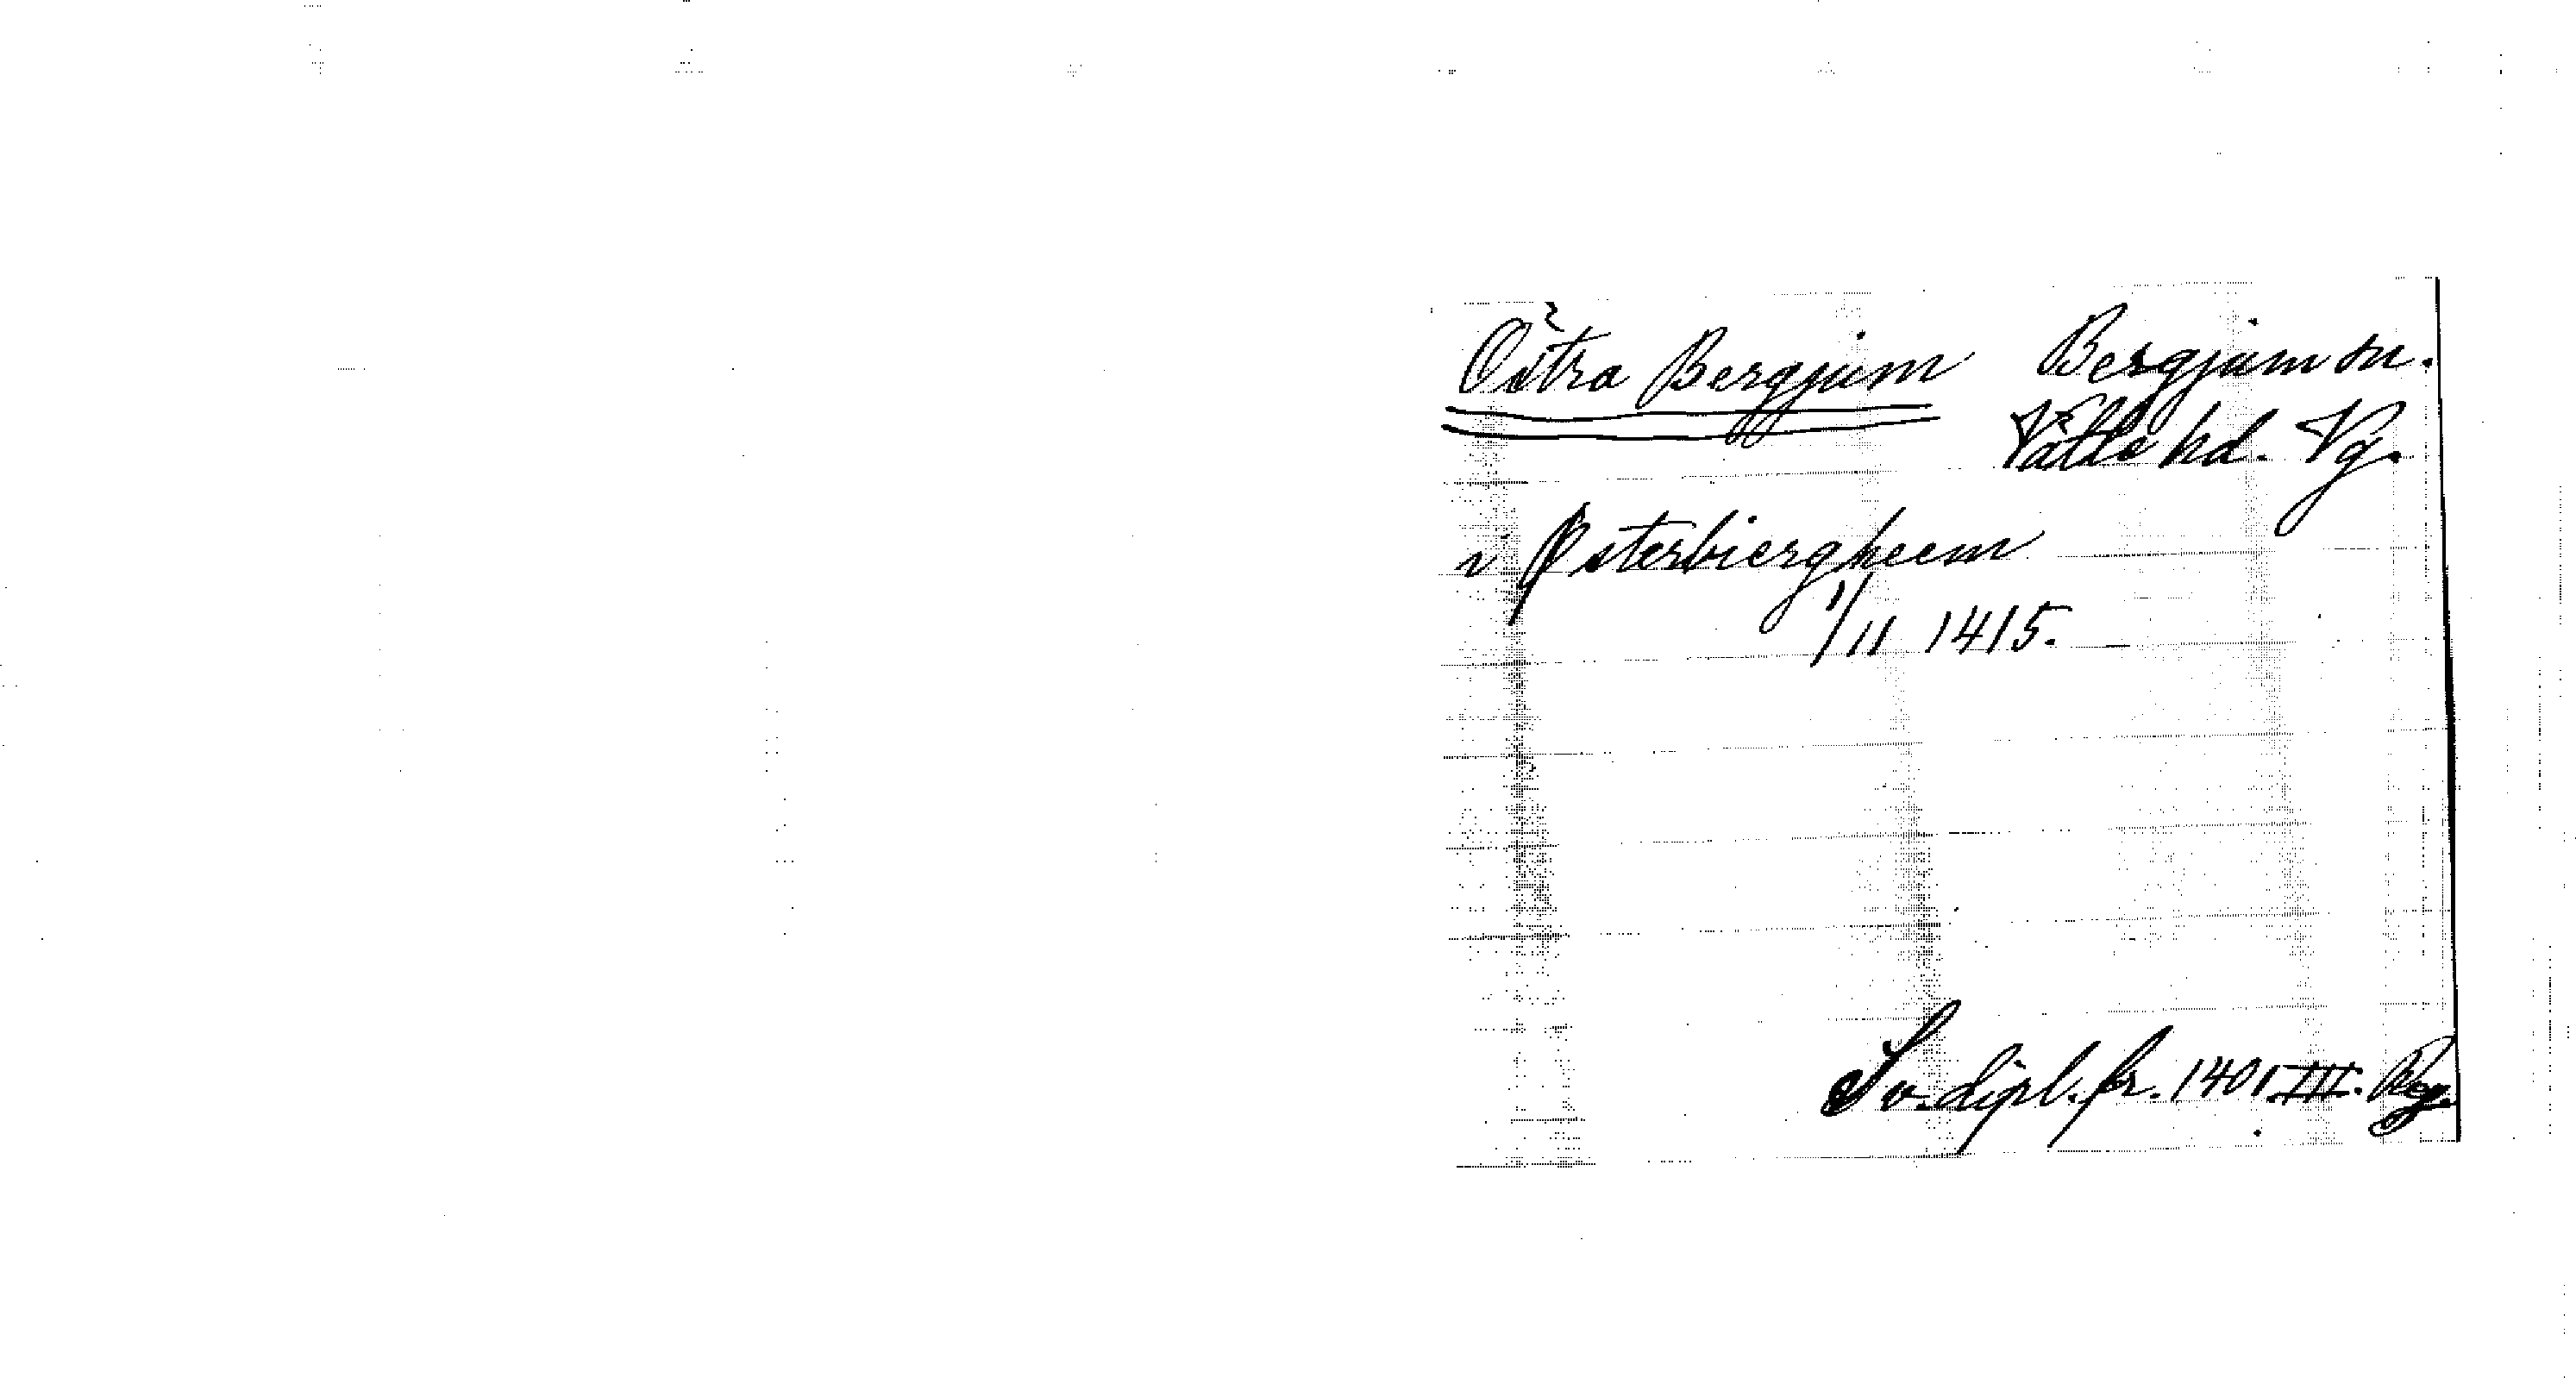 Östra Bergjum Bergjum sn.
Vättle hd. Vg.
i Østerbiergheem
1/11 1415.
Sv. dipl. fr. 1401 III. Reg.